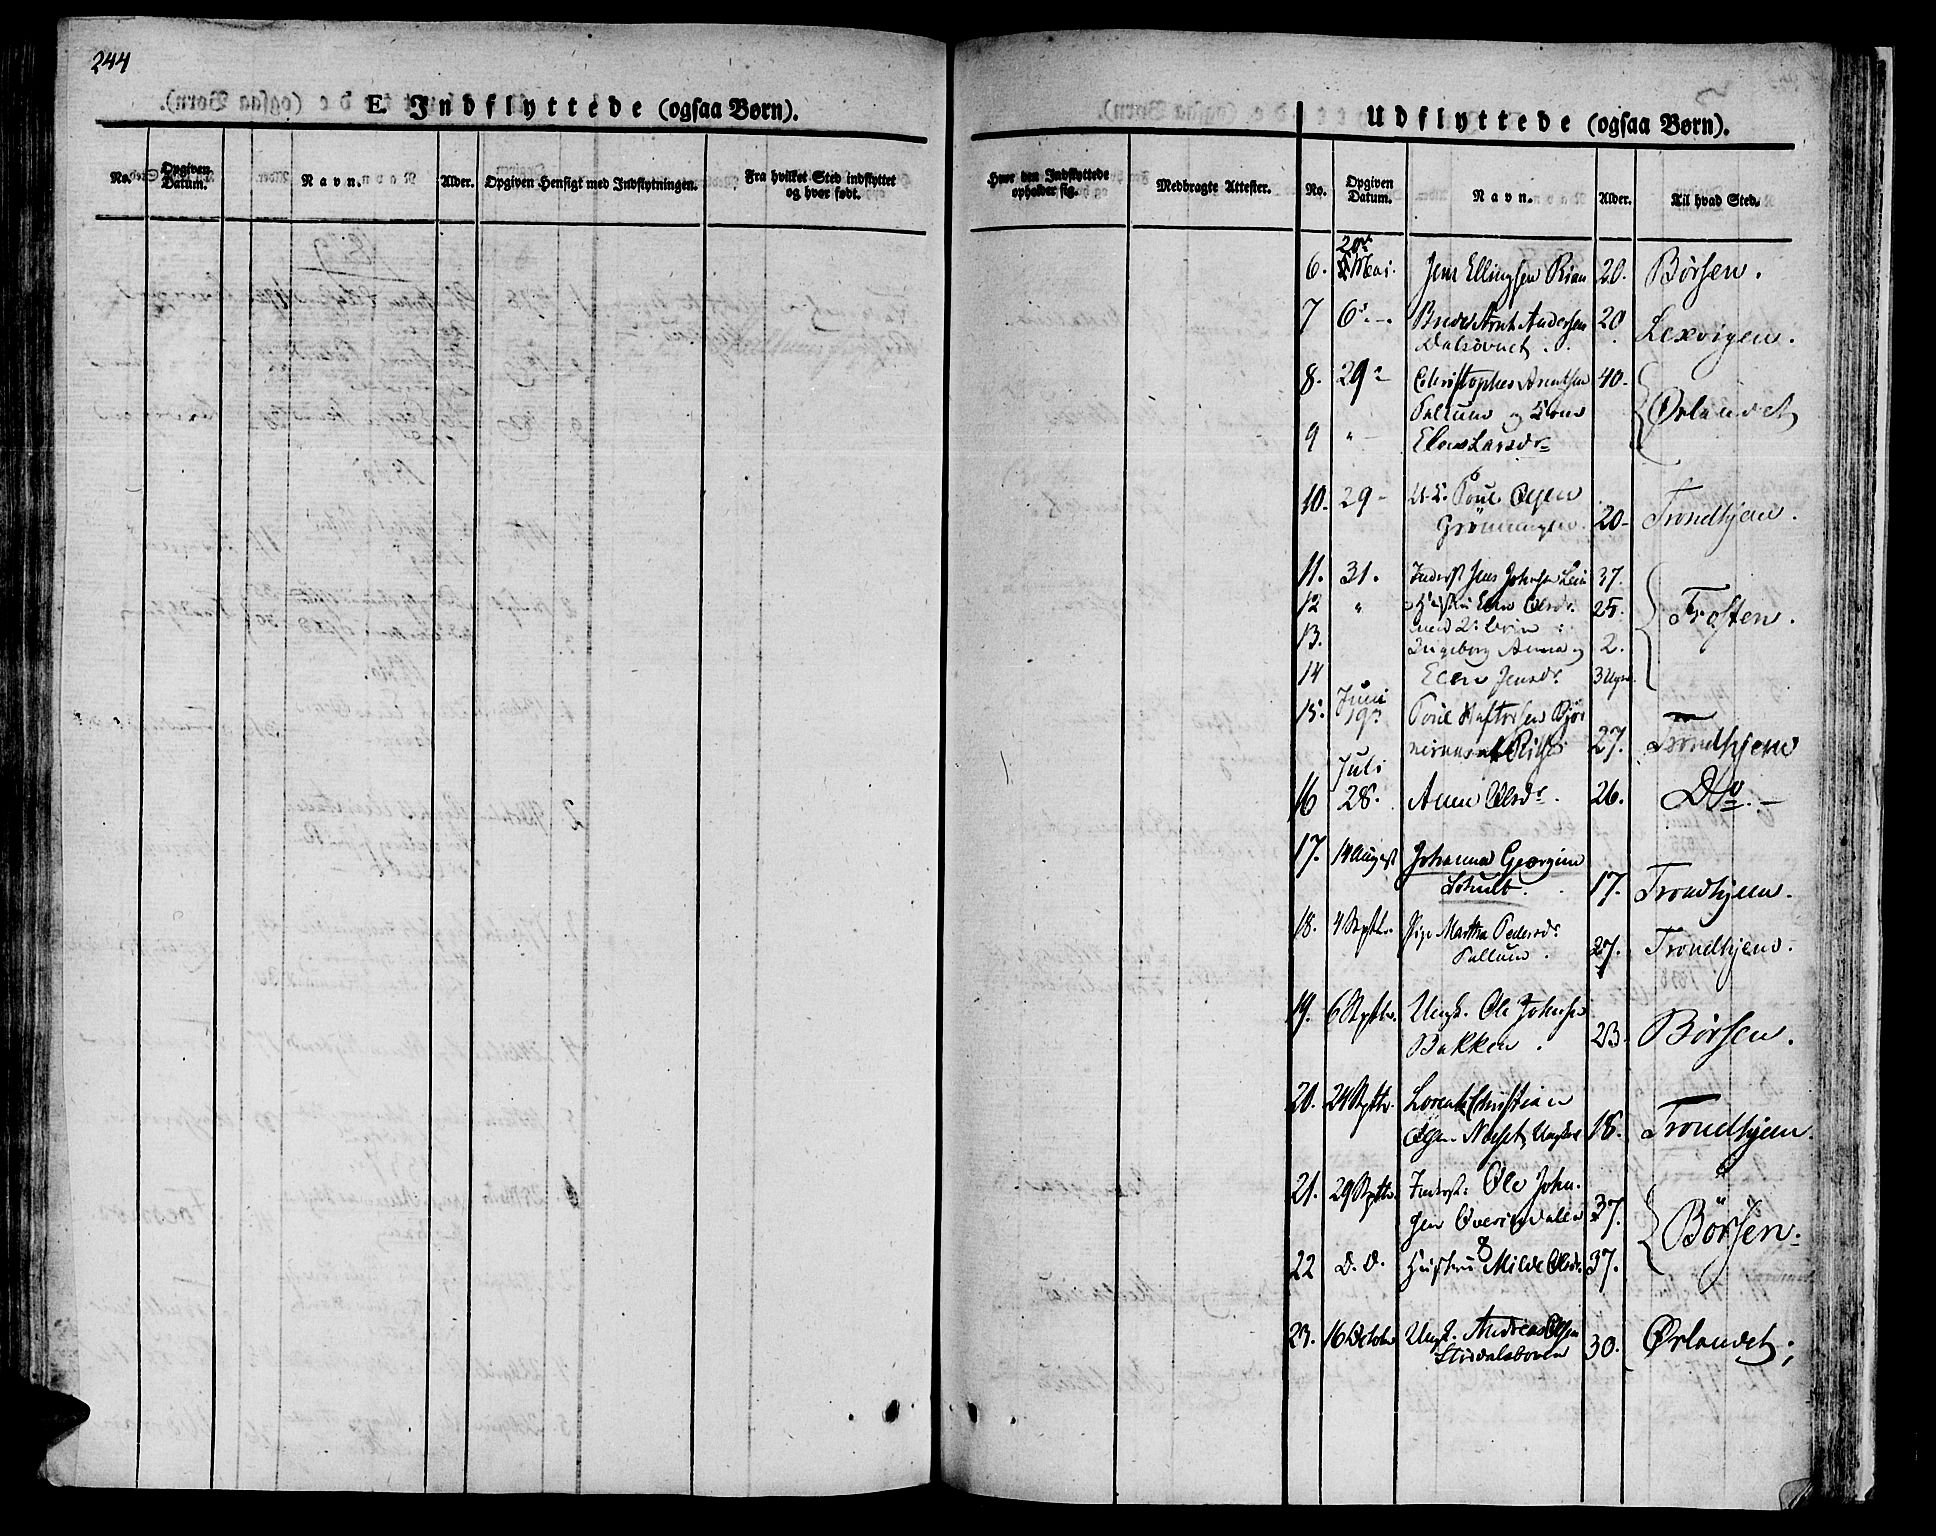 244
E. Indflyttede (ogsaa Børn).
No. Opgiven Datum. Navn. Alder. Opgiven Hensigt med Indflytningen. Fra hvilket Sted indflyttet og hvor født.
Hvor den Indflyttede opholder sig. Medbragte Attester.
Udflyttede (ogsaa Børn).
No. Opgiven Datum. Navn. Alder. Til hvad Sted.
6. Mai. Jens Ellingsen Rian 20. Børsen.
7 6 - Arnt Andersen 20. Lexvigen.
8. 29 - Christopher Arntsen 40.
og Kone Ørlandet
9 " - Elen Larsdr
10. 29 - Poul Olsen
20 - Trondhjem.
11. 31. Inderst Jens Johnsen 37.
12 " Hustru Elen Olsdr. 25.
med 2 Børn Frosten.
13. Ingeborg Anna og 2.
14 Elen Jensdr.
Juni
15. 19 Poul
27. Trondhjem
Juli
16 28. Anne Olsdr. 26. Do. -
17. 14 August Johanna Georgine
Schult. 17. Trondhjem.
18. 4 Septbr. Pige Martha Pedersdr.
27. Trondhjem.
19. 6 Septbr. Ungk. Ole Johnsen
Bakken. 23. Børsen.
20. 24 Septbr. Lorents Christian
Olsen Næsset, Ungkarl 18. Trondhjem.
21. 29 Septbr. Inderst: Ole John-
sen 37.
Børsen.
22 D. D. Hustru Milde Olsdr. 37.
23. 16 October Ungk. Andreas Olsen
30. Ørlandet;